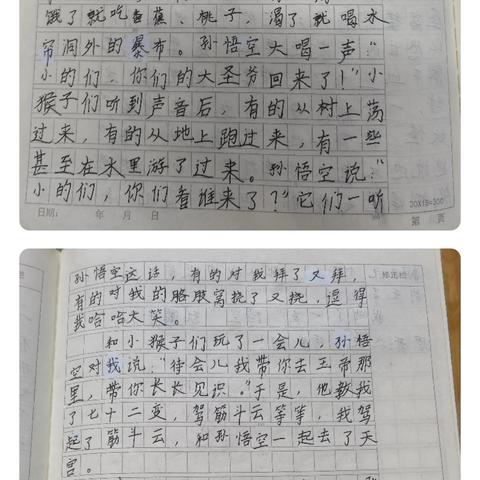 饿了就吃香蕉、桃子,渴了就喝水
帘洞外的暴布。孙悟空大喝一声:“
小的们,你们的大圣爷回来了!”小
猴子们听到声音后,有的从树上荡
过来,有的从地上跑过来,有一些
甚至在水里游了过来。孙悟空说:“
小的们,你们看谁来了?”它们一听
日期: 年 月 日
20X15=300
第 页
孙悟空这话,有的对我拜了又拜,
有的对我的胳肢窝挠了又挠,逗得
我哈哈大笑。
和小猴子们玩了一会儿,孙悟
空对我说:“待会儿我带你去玉帝那
里,带你长长见识。”于是,他教我
了七十二变,驾筋斗云等等,我驾
起了筋斗云,和孙悟空一起去了天
宫。